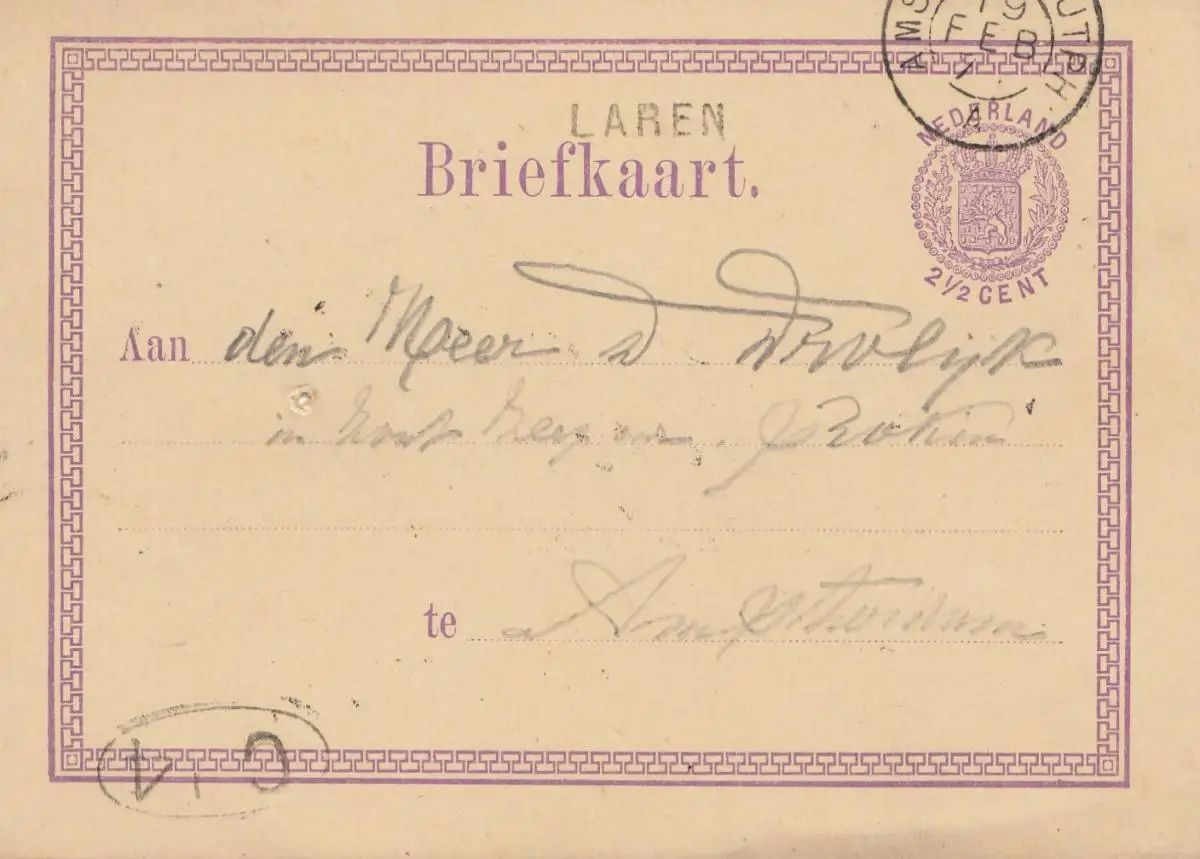 AMS UTPH.
19
FEB
7
A
LAREN
Briefkaart.
NEDERLAND
2 1/2 CENT
Aan den Heer
in
te Amsterdam
C 4